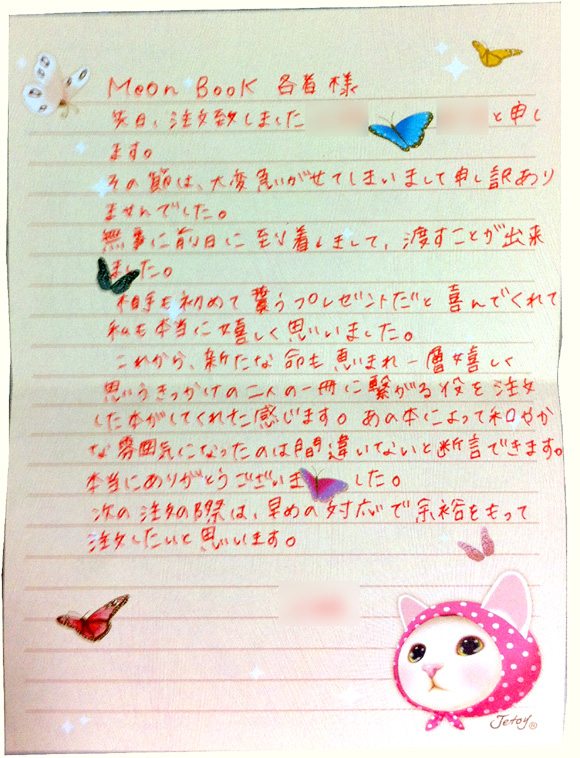 Moon Book 各者様
先日、注文致しました と申し
ます。
その節は、大変急いがせてしまいまして申し訳あり
ませんでした。
無事に前日に到着しまして、渡すことが出来
ました。
相手も初めて貰うプレゼントだと喜んでくれて
私も本当に嬉しく思いいました。
これから、新たな命も恵まれ一層嬉しく
思いうきっかけの二人の一冊に繋がる役を注文
した本がしてくれた感じます。あの本によって和やか
な雰囲気になったのは間違いてないと断言できます。
本当にありがとうございま した。
次の注文の際は、早めの対応で余裕をもって
注文したいと思いいます。
Jetoy®